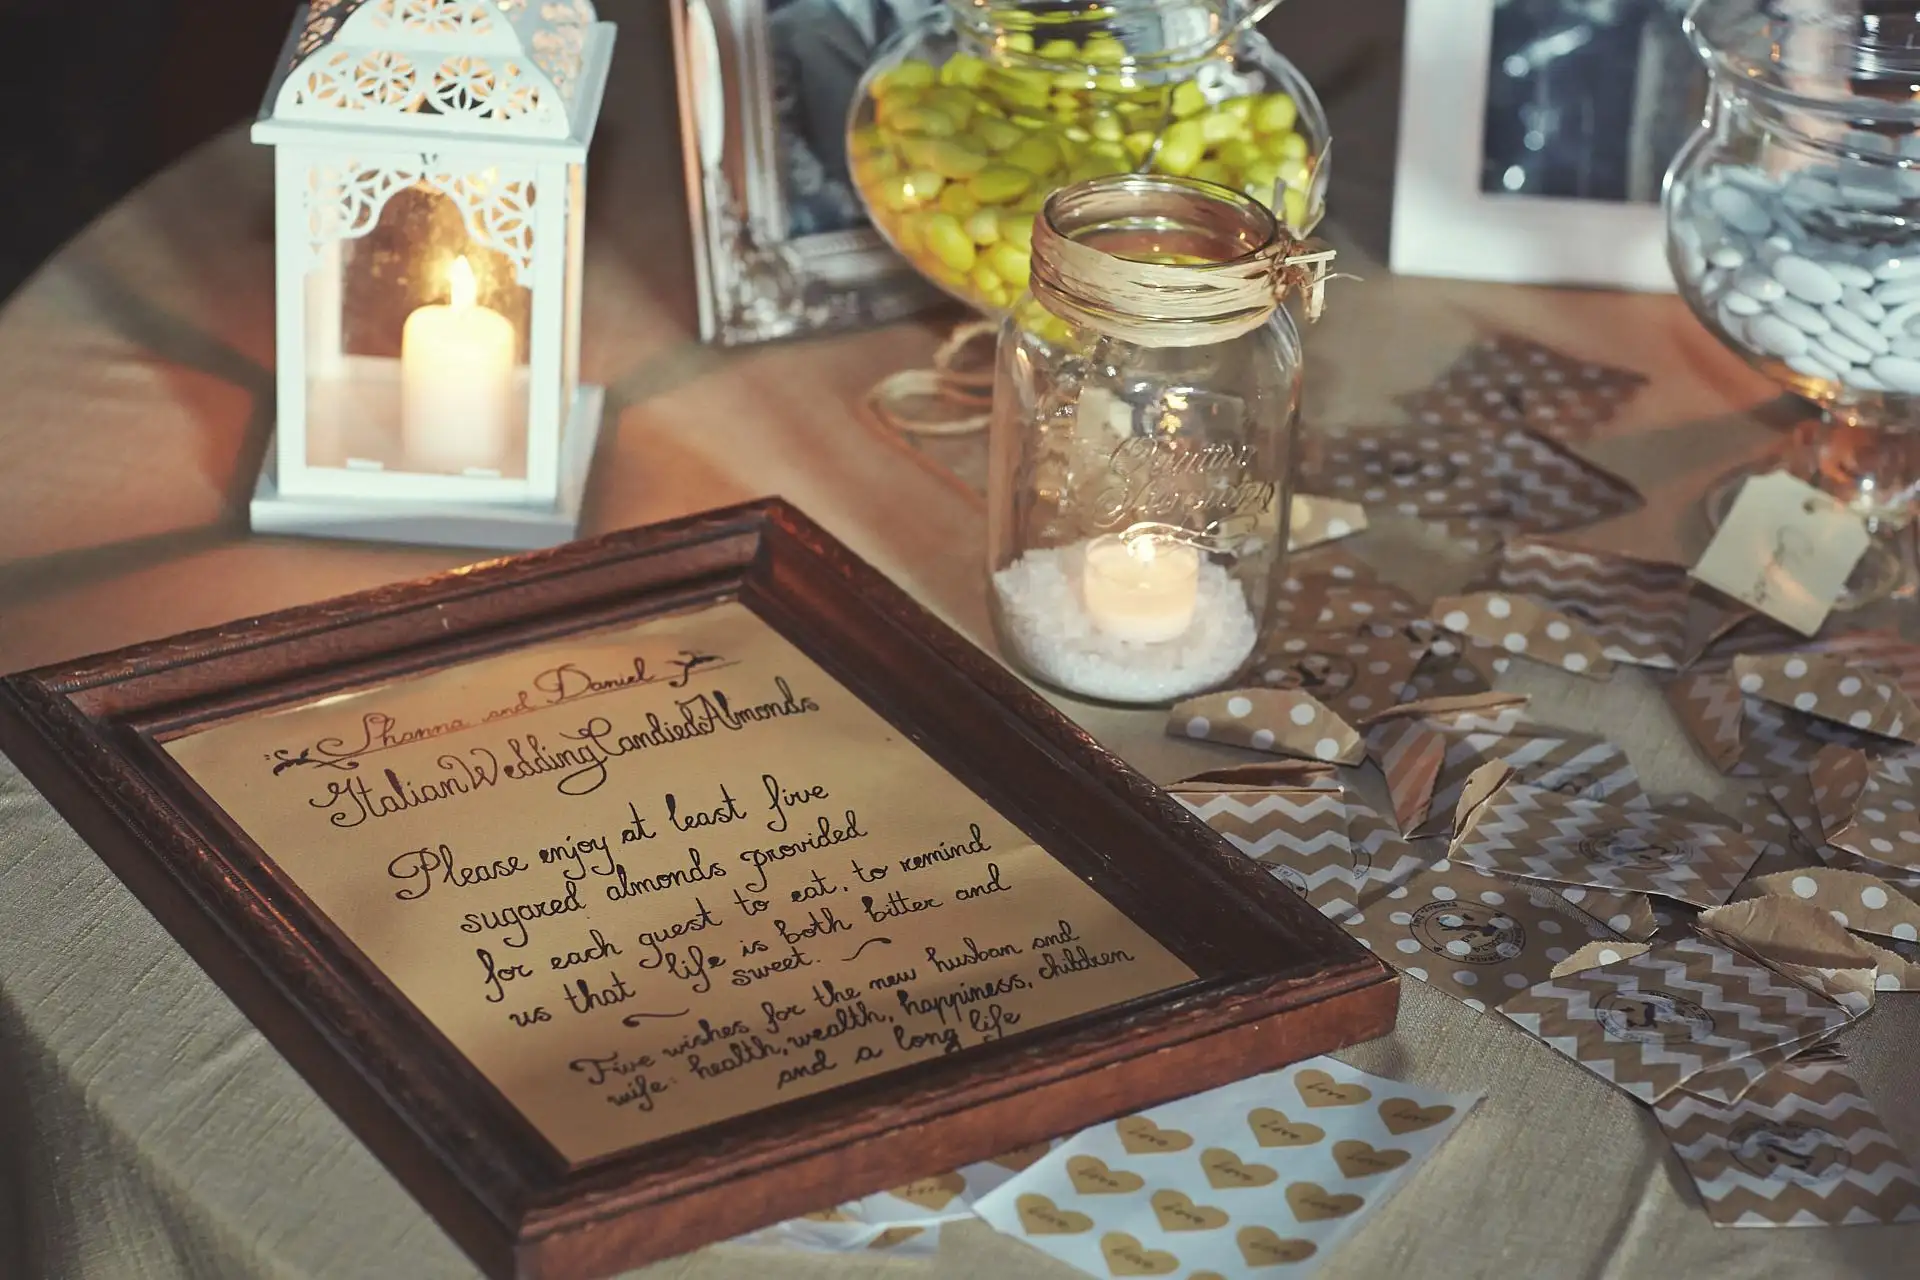 Shanna and Daniel
Italian Wedding Candied Almonds
Please enjoy at least five
sugared almonds provided
for each guest to eat. to remind
us that life is both bitter and
sweet.
Five wishes for the new husban and
wife: health, wealth, happiness, children
and a long life
Love
Love
Love
Love
Love
Love
Love
Love
Love
Love
Love